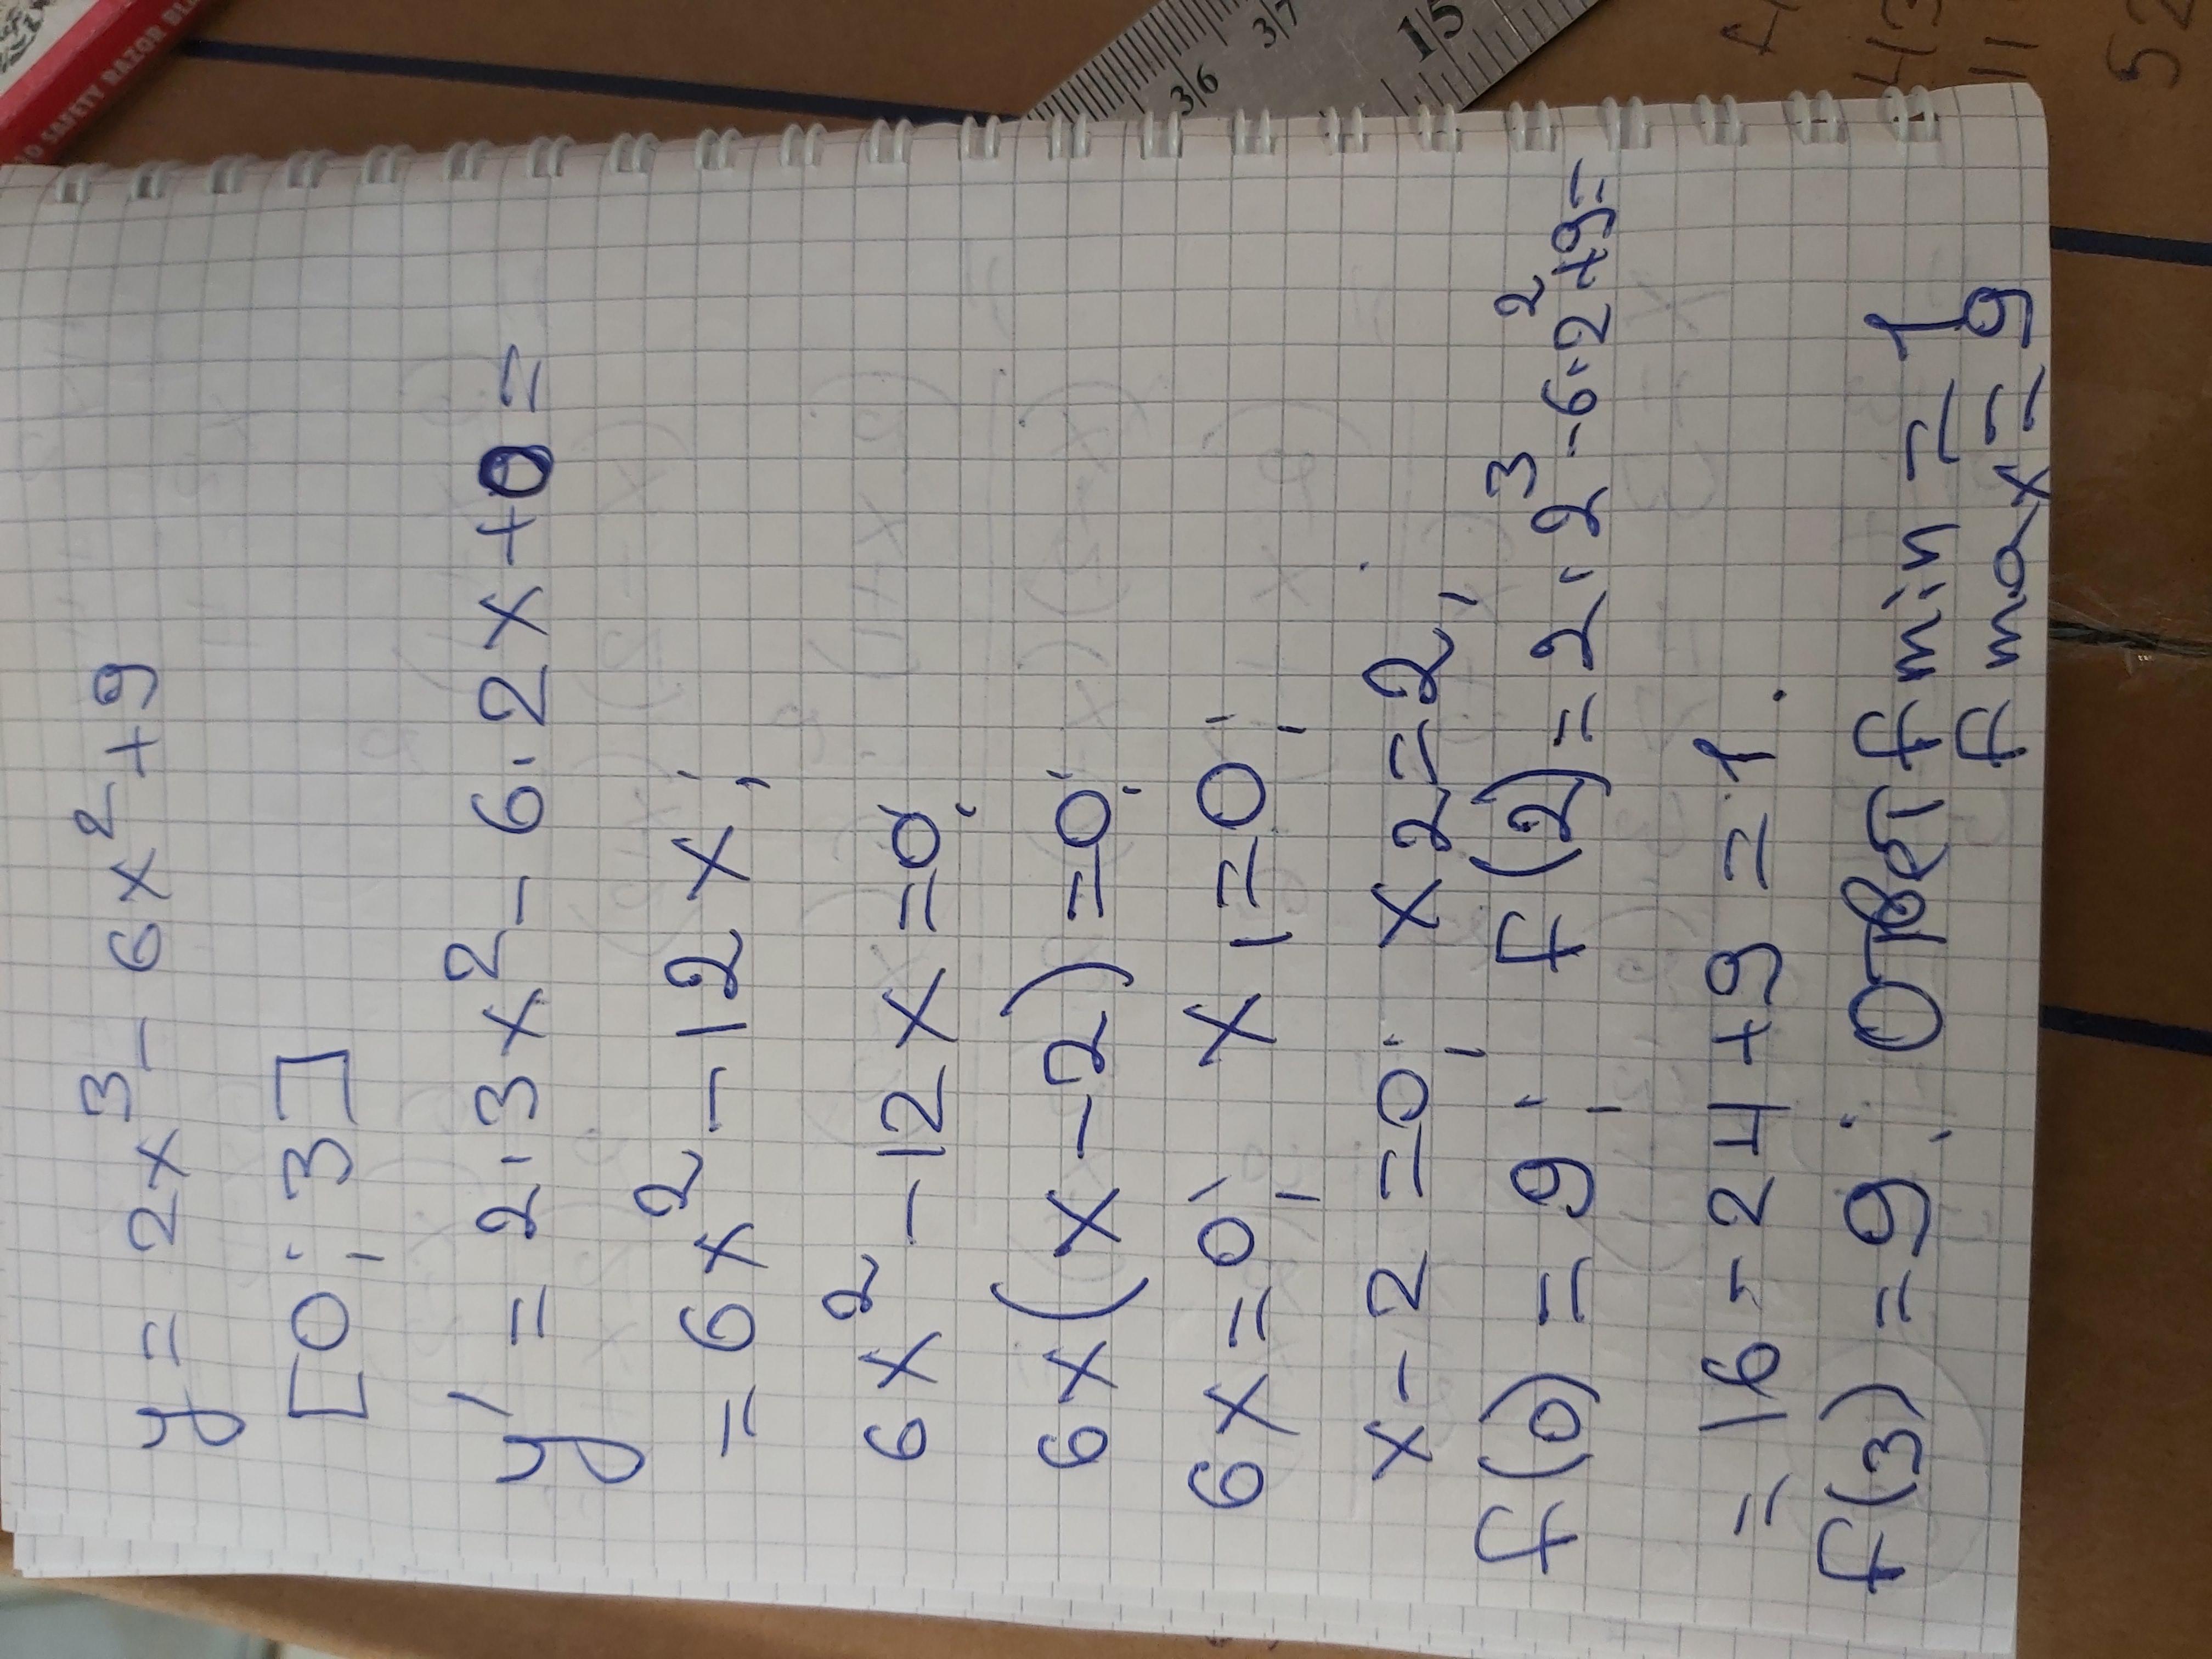 y = 2x³ - 6x² + 9
[0; 3]
y' = 2·3x² - 6·2x + 0 =
= 6x² - 12x;
6x² - 12x = 0;
6x(x - 2) = 0;
6x = 0; x1 = 0;
x - 2 = 0; x2 = 2;
f(0) = 9; f(2) = 2·2³ - 6·2² + 9 =
= 16 - 24 + 9 = 1.
f(3) = 9; Ответ f min = 1
f max = 9
10 SAFETY RAZOR BLA
3/6
3/7
15
43
11
52